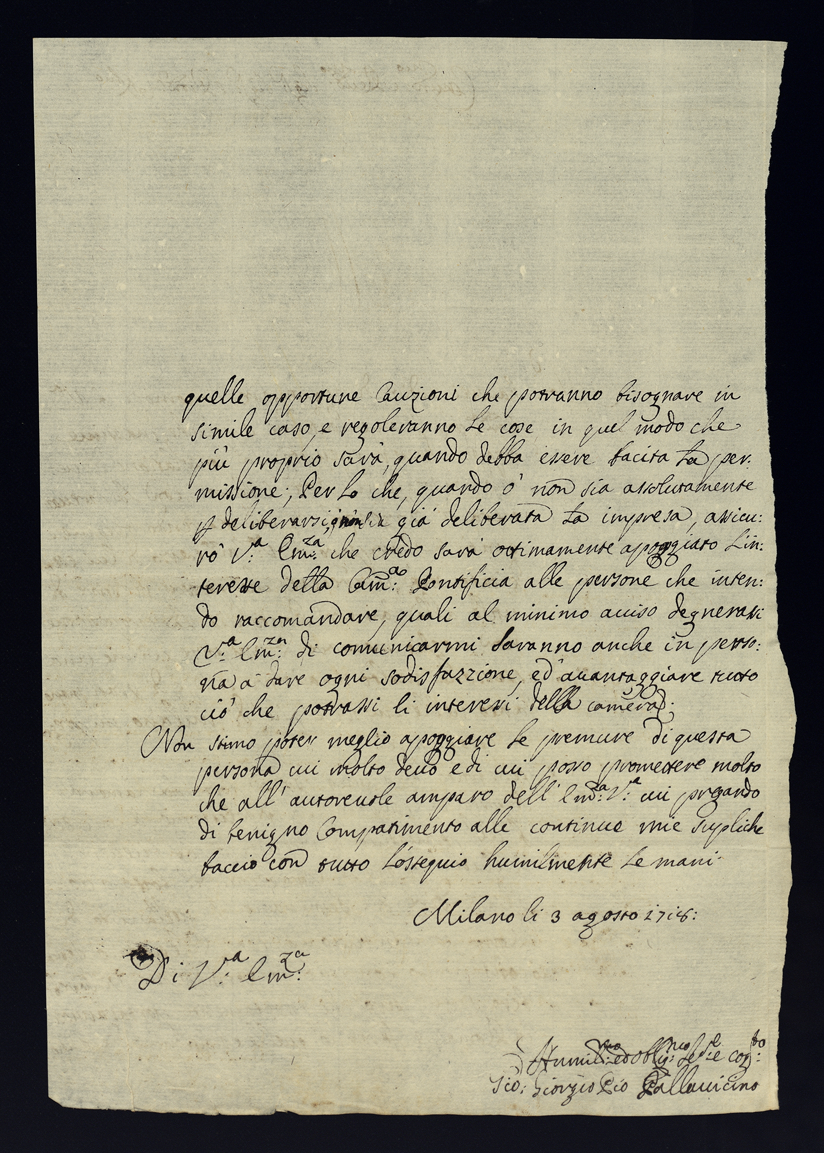 quelle opportune Cauzioni che potranno bisognare in
simile caso, e regoleranno le cose in quel modo che
più proprio sarà, quando debba essere tacita la per:
missione; Per lo che, quando ò non sia assolutamente
p deliberarsi, già deliberata la impresa, assicu:
rò V.ª Em.ᶻᵃ che credo sarà ottimamente apoggiato L'in:
teresse della Cam.ª Pontificia alle persone che inten:
do raccomandare, quali al minimo aviso degnerasi
V.ª Em.ᶻᵃ di comunicarmi saranno anche in perso:
na à dare ogni sodisfazzione, ed'avantaggiare tutto
ciò che potrassi li interessi della camera;
Non stimo poter meglio apoggiare le premure di questa
persona cui molto devo e di cui posso promettere molto
che all'autorevole amparo dell'Em.ᶻᵃ V.ª cui pregando
di benigno Compatimento alle continue mie supliche
baccio con tutto L'ossequio humilmente le mani.
Milano li 3 agosto 1718:
Di V.ª Em.ᶻᵃ
Humil.ᵐᵒ ed obblig.ᵐᵒ
Gio: Giorgio Pio Pallavicino